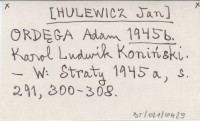 [HULEWICZ Jan]
ORDĘGA Adam 1945b.
Karol Ludwik Koniński.
– W: Straty 1945a, s.
291, 300-308.